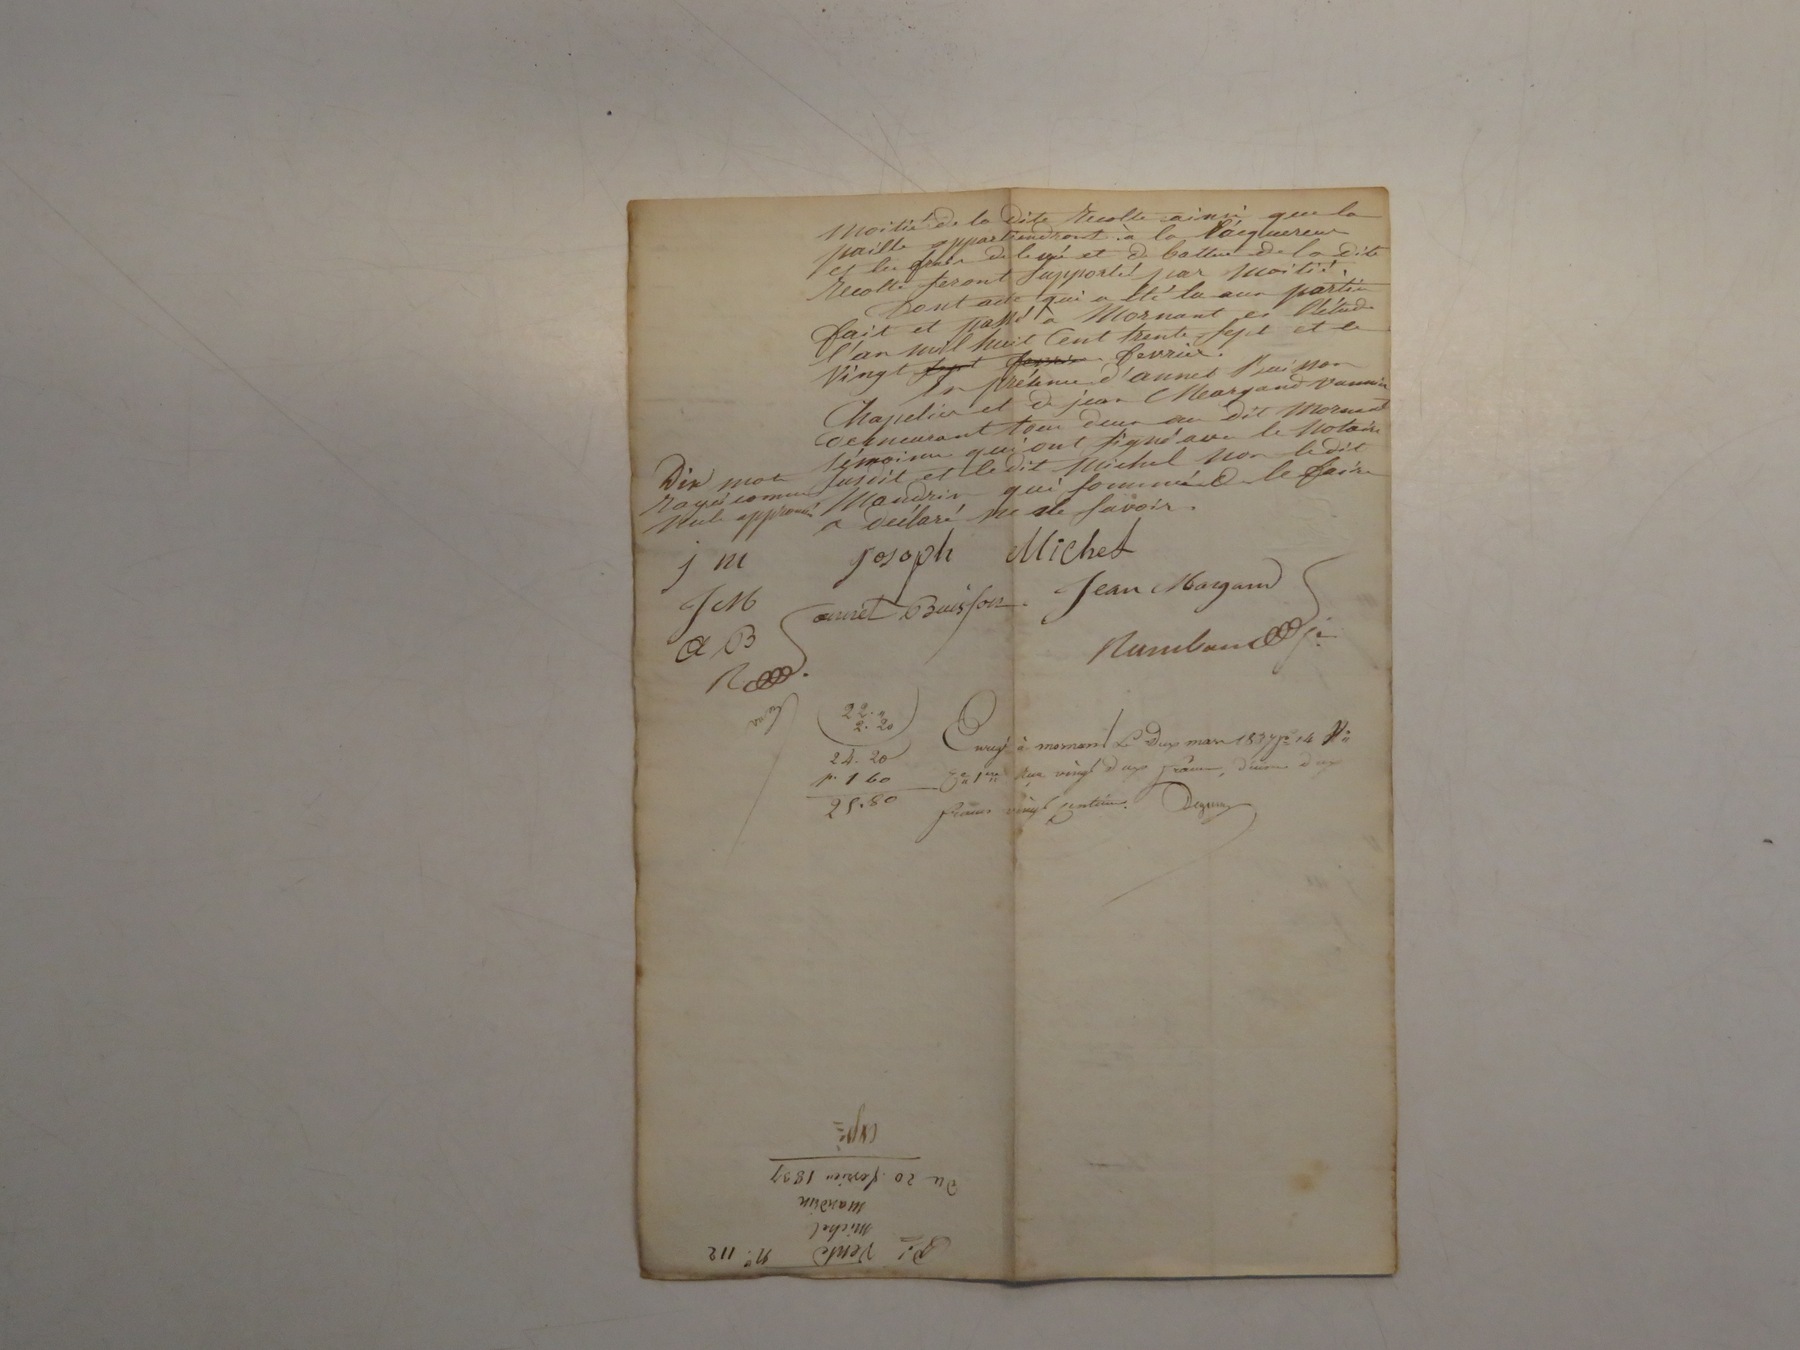 moitié de la dite recolte ainsi que la
paille appartiendront à la l'acquereur
et les frais de levé et de batture de la dite
recolte seront supporté par moitié.
Dont acte qui a été lu aux partie
fait et passé à Mornant es l'étude
l'an mil huit cent trente sept et le
vingt sept fevrier fevrier.
En présence d'annet Buisson
Chapelier et de jean Margand
demeurant tous deux au dit Mornant
témoins qui ont signé avec le Notaire
susdit et le dit Michel non le dit
Mandrin qui sommé de le faire
a déclaré ne le savoir.
Dix mots
rayés comme
nuls approuvé
j m Joseph Michel
J M annet Buisson Jean Margand
a B
R
22.
2. 20
24. 20
1 60
25. 80
Enregé à mornant Le Deux mars 1837 fo 14 Vo
Reçu vingt deux francs, dixime deux
francs vingt centimes.
Vente no. 112
Michel
Mandrin
Du 20 fevrier 1837
expé